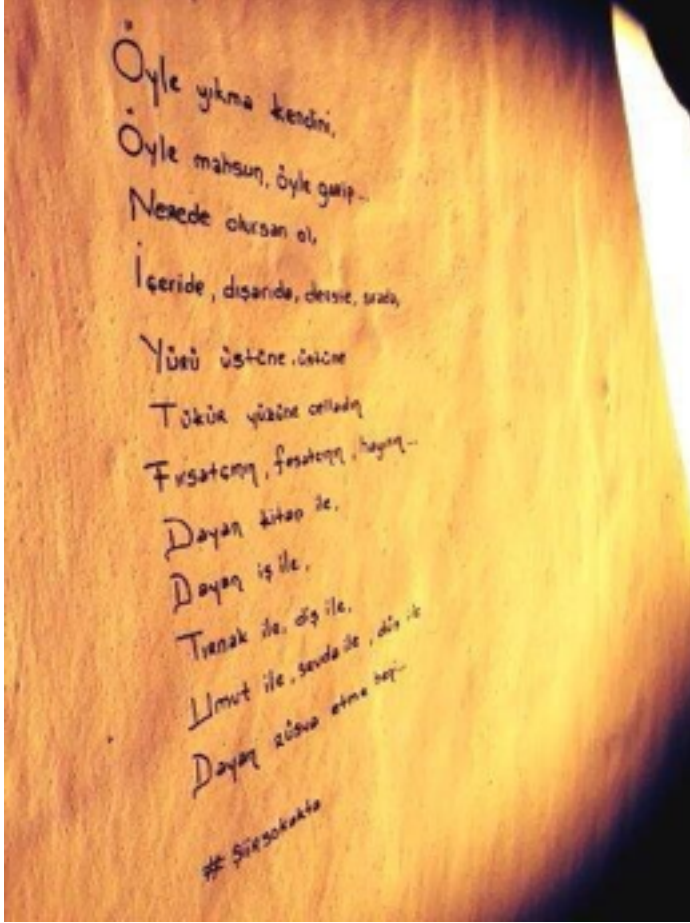 Öyle yıkma kendini,
Öyle mahsun, öyle garip...
Nerede olursan ol,
İçeride, dışarıda, derste, sırada,
Yürü üstüne, üstüne
Tükür yüzüne celladın
Fırsatçının, fesatçının, hayının...
Dayan kitap ile,
Dayan iş ile,
Tırnak ile, diş ile,
Umut ile, sevda ile, düş ile
Dayan rüsva etme beni...
#şiirsokakta